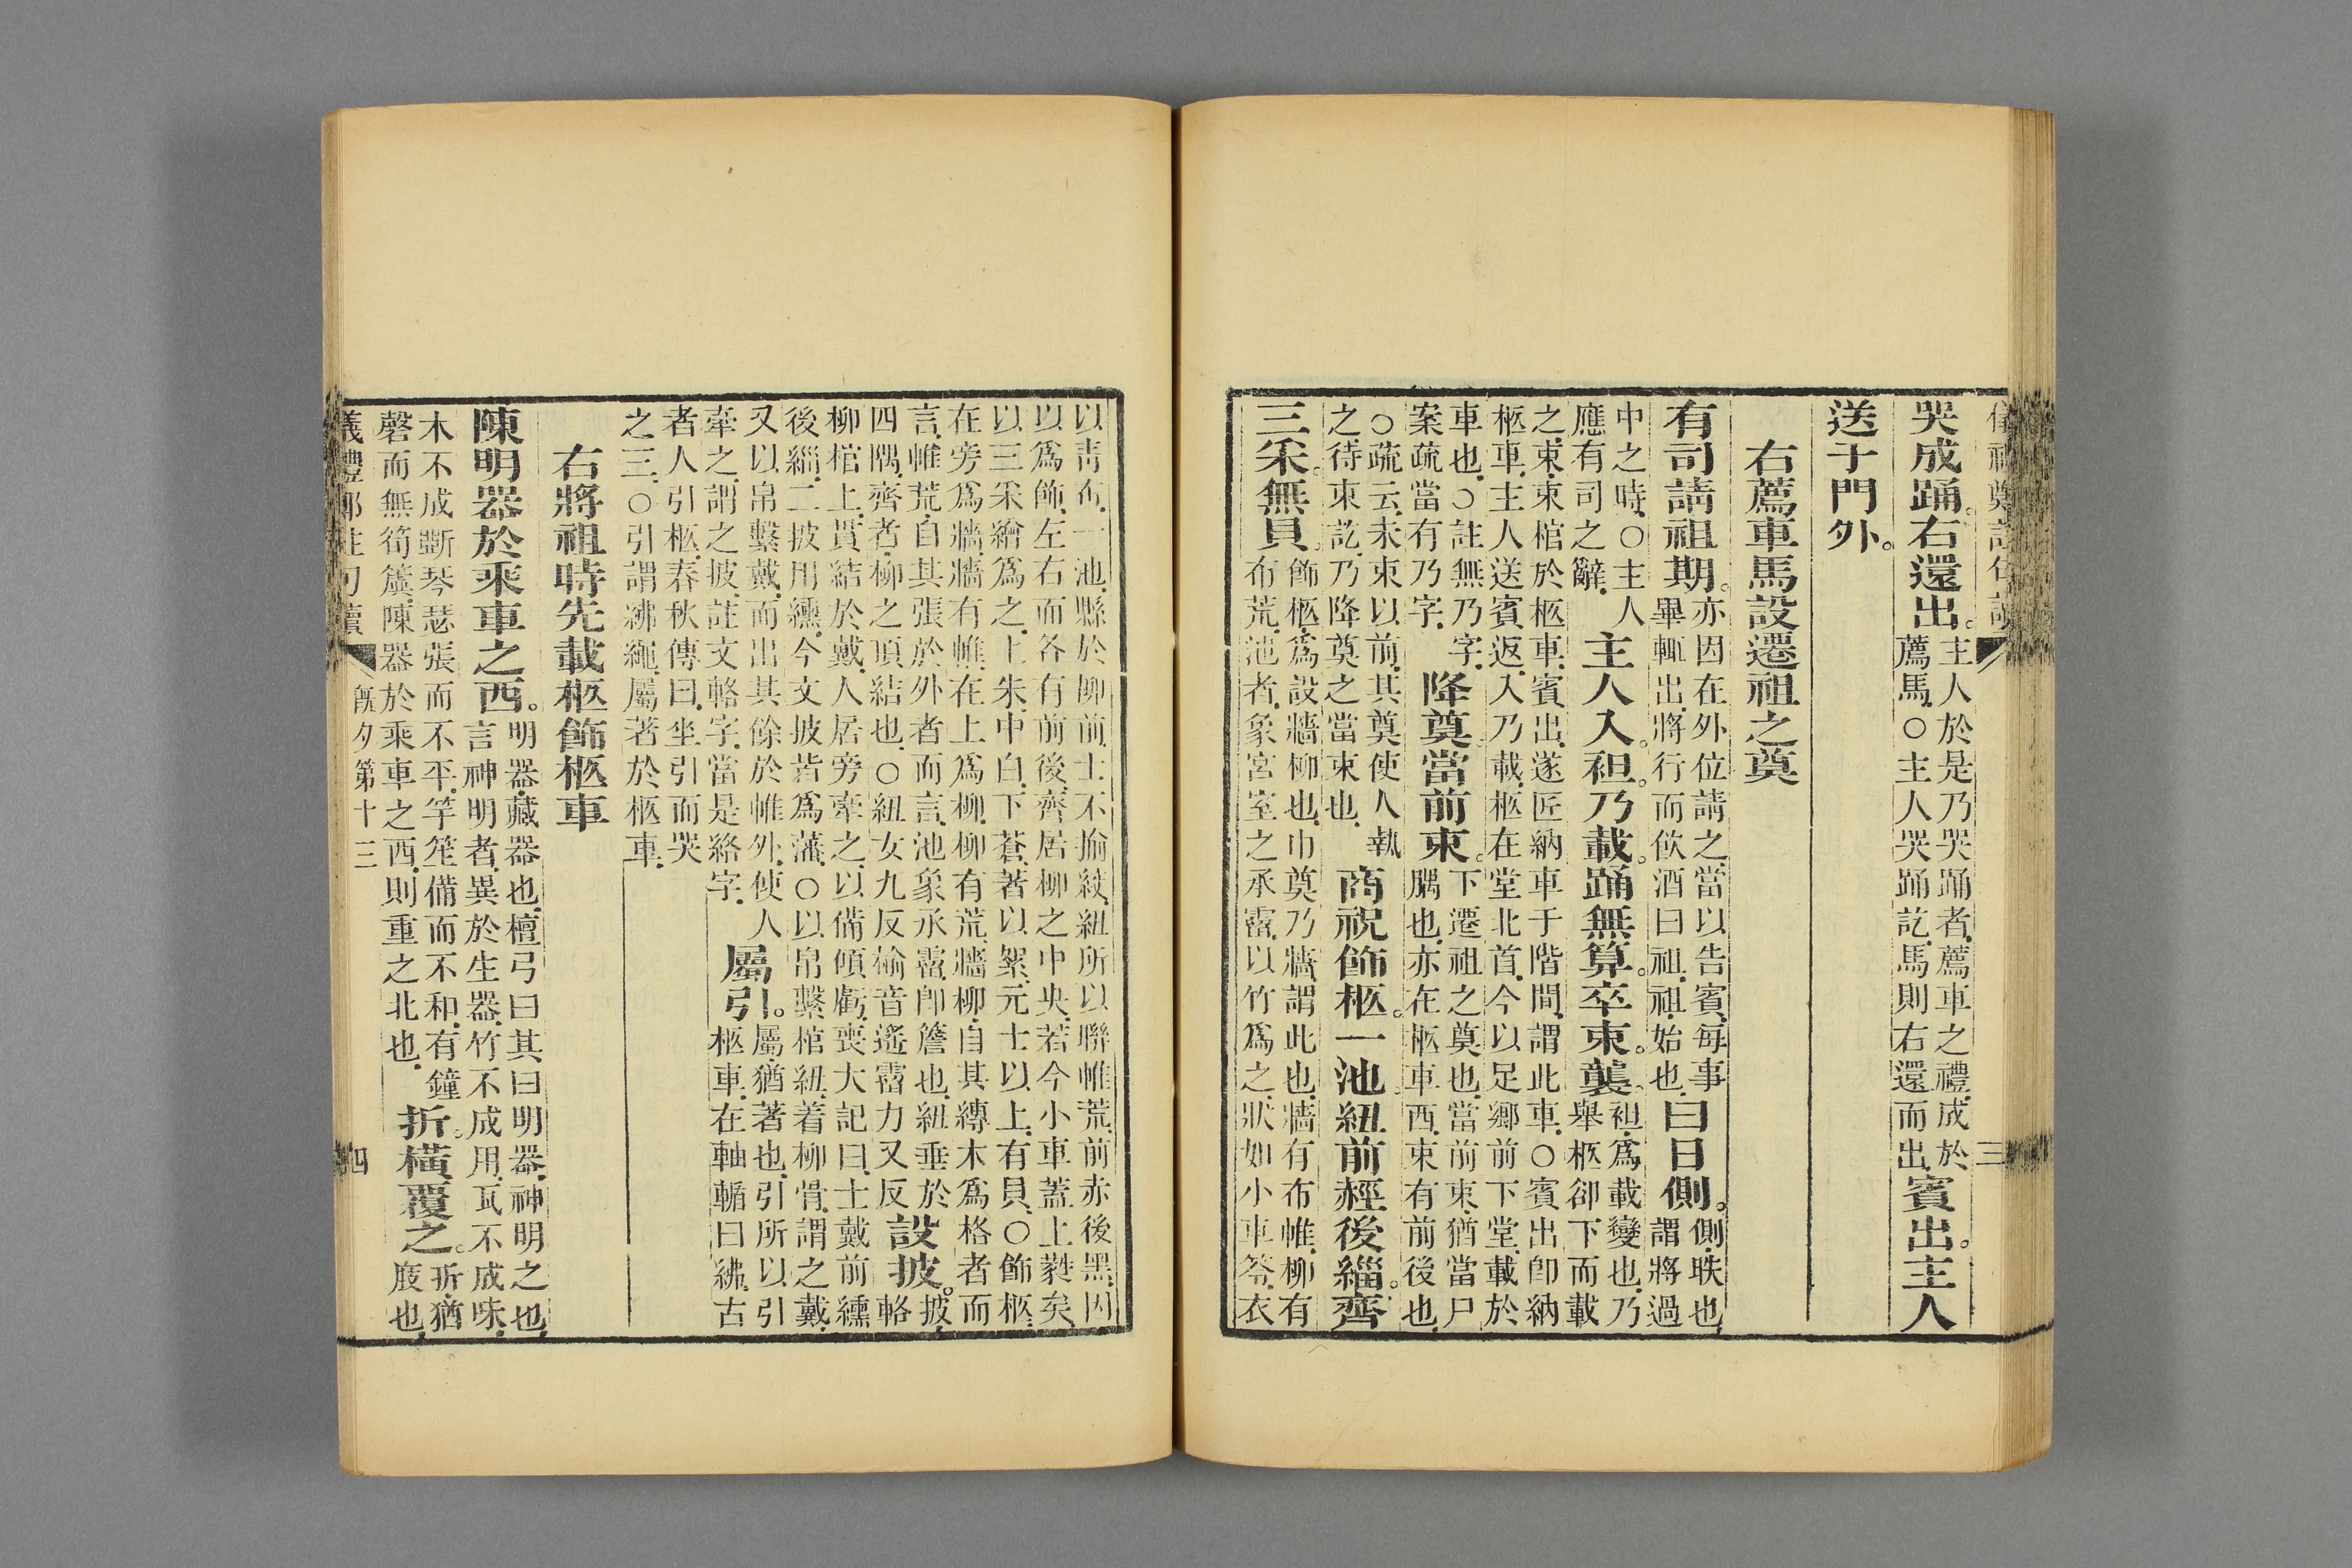 儀禮鄭註句讀 三
哭成踊。右還出。主人於是乃哭踊者,薦車之禮,成於
薦馬,○主人哭踊訖,馬則右還而出,賓出。主人
送于門外。
右薦車馬設遷祖之奠
有司請祖期。亦因在外位請之,當以告賓,每事
畢輒出,將行而飲酒曰祖,祖,始也,曰日側。側,昳也,
謂將過
中之時,○主人
應有司之辭,主人入。袒。乃載。踊無算。卒束。襲。袒,爲載變也,乃
舉柩卻下而載
之,束,束棺於柩車,賓出,遂匠納車于階間,謂此車,○賓出卽納
柩車,主人送賓,返入乃載,柩在堂北首,今以足鄉前下堂,載於
車也,○註無乃字,
案疏當有乃字,降奠。當前束。下遷祖之奠也,當前束,猶當尸
腢也,亦在柩車西,束有前後也,
○疏云,未束以前,其奠使人執
之待束訖,乃降奠之當束也,商祝飾柩。一池。紐前䞓後緇。齊
三采。無貝。飾柩,爲設牆柳也,巾奠乃牆,謂此也,牆有布帷,柳有
布荒,池者,象宮室之承霤,以竹爲之,狀如小車笭,衣
以靑布,一池,縣於柳前,士不揄紋,紐所以聯帷荒,前赤後黑,因
以爲飾,左右面各有前後,齊居柳之中央,若今小車蓋上蕤矣,
以三采繒爲之,上朱,中白,下蒼,著以絮,元士以上,有貝,○飾柩,
在旁爲牆,牆有帷,在上爲柳,柳有荒,牆柳,自其縛木爲格者而
言,帷荒,自其張於外者而言,池象承霤,卽簷也,紐垂於
四隅,齊者,柳之頂結也,○紐女九反揄音遙霤力又反設披。披,
輅
柳棺上,貫結於戴,人居旁牽之,以備傾虧,喪大記曰,士戴前纁
後緇,二披用纁,今文披皆爲藩,○以帛繫棺紐,着柳骨,謂之戴,
又以帛繫戴,而出其餘於帷外,使人
牽之,謂之披,註文輅字,當是絡字,屬引。屬,猶著也,引所以引
柩車,在軸輴曰紼,古
者人引柩,春秋傳曰,坐引而哭
之三,○引謂紼繩,屬著於柩車,
右將祖時先載柩飾柩車
陳明器於乘車之西。明器,藏器也,檀弓曰其曰明器,神明之也,
言神明者,異於生器,竹不成用,瓦不成味,
木不成斲,琴瑟張而不平,竽笙備而不和,有鐘
磬而無筍簴,陳器於乘車之西,則重之北也,折。橫覆之。折,猶
庪也,
儀禮鄭註句讀 旣夕第十三 四